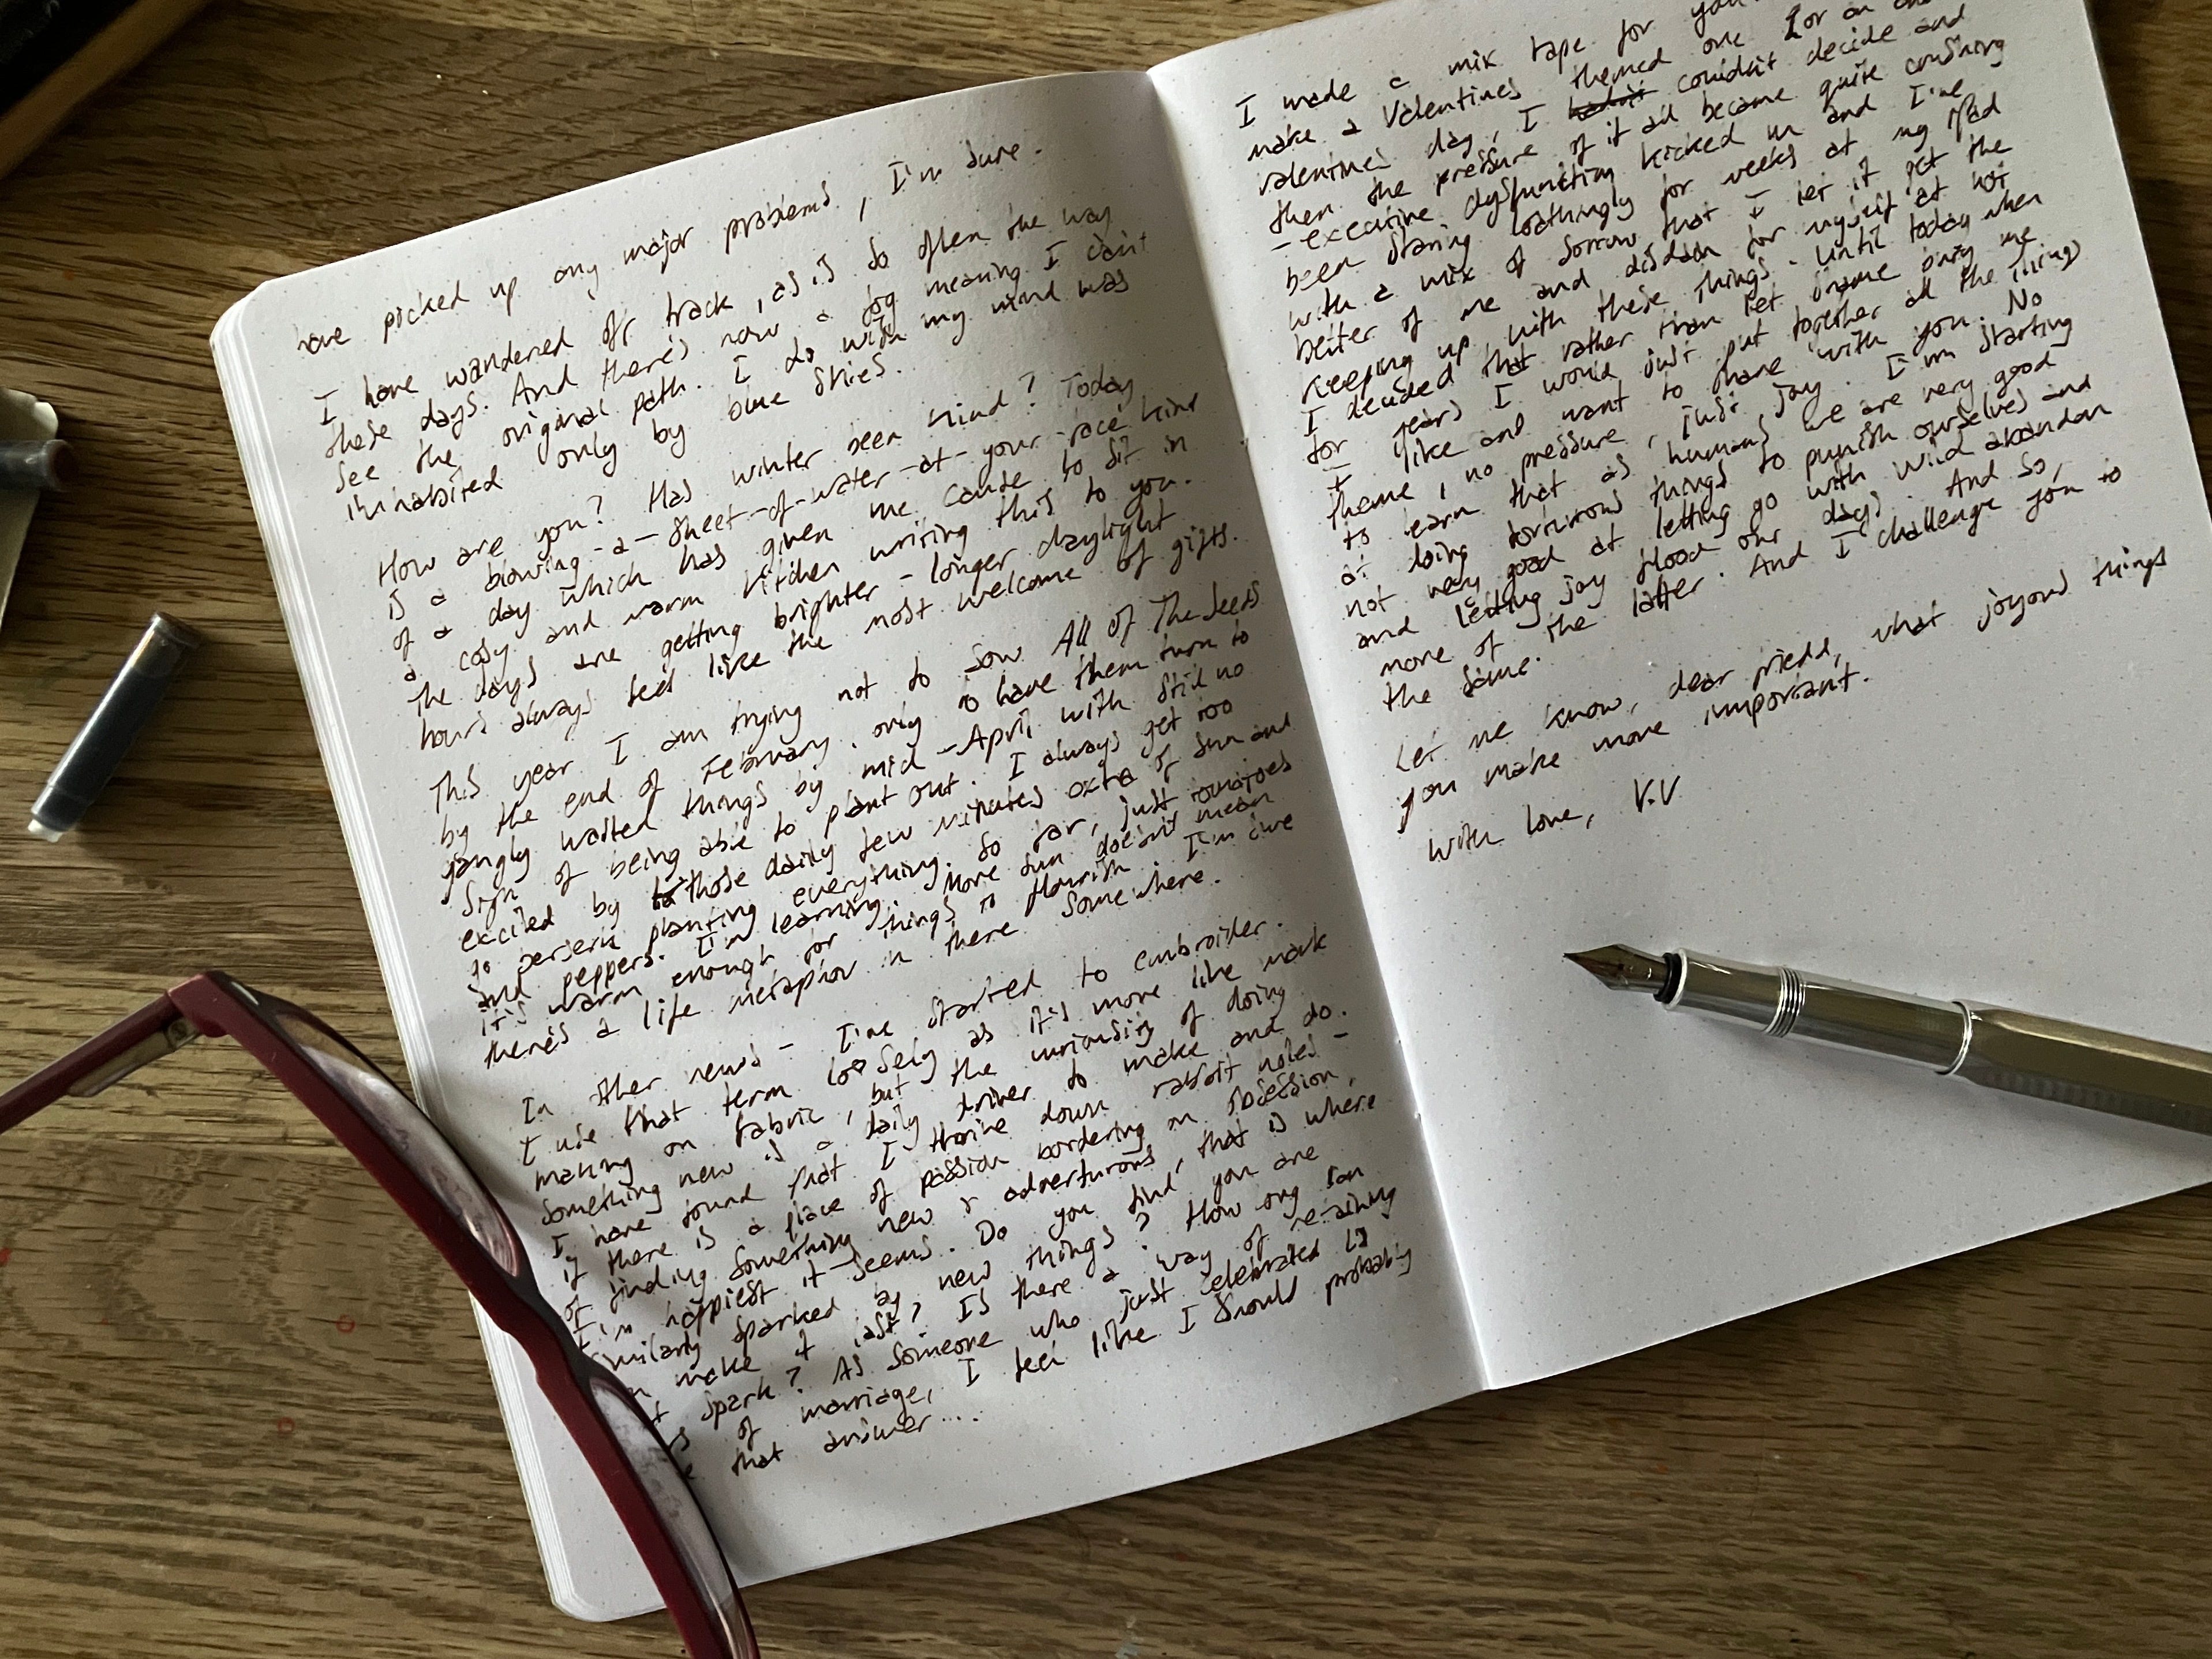 have picked up any major problems, I'm sure.
I have wandered off track, as is so often the way
these days. And there's now a fog meaning I can't
see the original path. I do wish my mind was
inhabited only by blue skies.
How are you? Has winter been kind? Today
is a blowing-a-sheet-of-water-at-your-face kind
of a day which has given me cause to sit in
a cosy and warm kitchen writing this to you.
The days are getting brighter - longer daylight
hours always feel like the most welcome of gifts.
This year I am trying not to sow All of The Seeds
by the end of February, only to have them turn to
gangly wasted things by mid-April with still no
sign of being able to plant out. I always get too
excited by those daily few minutes extra of sun and
go berserk planting everything. So far, just tomatoes
and peppers. I'm learning. More sun doesn't mean
it's warm enough for things to flourish. I'm sure
there's a life metaphor in there somewhere.
In other news - I've started to embroider.
I use that term loosely as it's more like mark
making on fabric, but the curiosity of doing
something new is a daily driver to make and do.
I have found that I thrive down rabbit holes -
if there is a place of passion bordering on obsession,
of finding something new & adventurous, that is where
I'm happiest it seems. Do you find you are
similarly sparked by new things? How long can
make it last? Is there a way of retaining
spark? As someone who just celebrated 19
of marriage, I feel like I should probably
that answer....
I made a mix tape for you.
make a Valentines themed one for an
valentines day, I couldn't decide and
then the pressure of it all became quite crushing
- executive dysfunction kicked in and I've
been staring loathingly for weeks at my iPad
with a mix of sorrow that I let it get the
better of me and disdain for myself at not
keeping up with these things. Until today when
I decided that rather than let shame bury me
for years I would just put together all the things
I like and want to share with you. No
theme, no pressure, just joy. I'm starting
to learn that as humans we are very good
at doing torturous things to punish ourselves and
not very good at letting go with wild abandon
and letting joy flood our days. And so,
more of the latter. And I challenge you to
the same.
Let me know, dear friend, what joyous things
you make more important.
With love, V.V